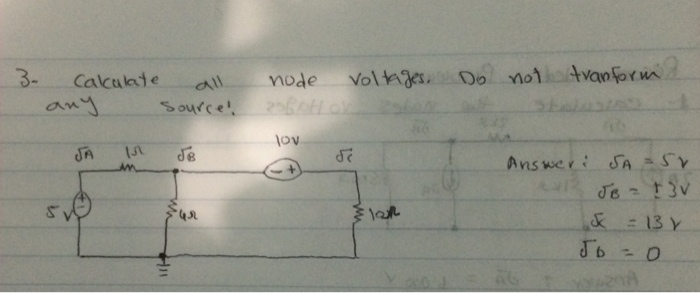 3- Calculate all node voltages. Do not tranform
any source!
VA 1Ω VB 10V Vc
- +
5V + - 4Ω
Answer: VA = 5V
VB = 3V
Vc = 13V
VD = 0